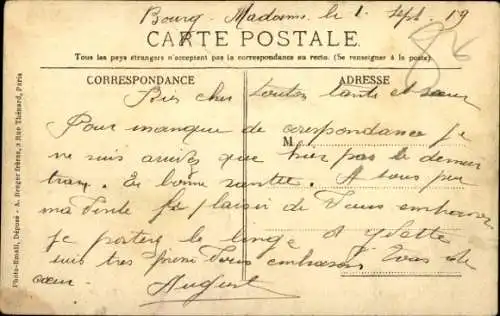 Bourg-Madame le 1 Sept. 19
CARTE POSTALE
Tous les pays étrangers n'acceptent pas la correspondance au recto. (Se renseigner à la poste).
CORRESPONDANCE
ADRESSE
Bien cher tonton tante et sœur
Pour manque de corespondance je
M
ne suis arrivés que hier pas le dernier
En bonne santée. A vous
le plaisir de vous embrasser
je porterez le linge a Yvette
suis très vous embrassons
cœur
August
Photo-Email, Déposé - A. Breger frères, 9 Rue Thénard, Paris